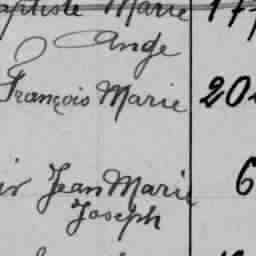 aptiste Marie 177
Ange
François Marie 20
Jean Marie 6
Joseph